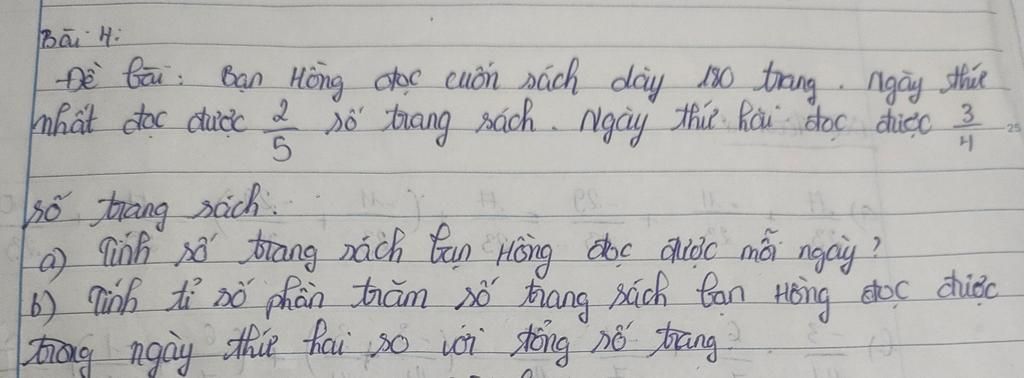 Bài 4:
Đề bài: Bạn Hồng đọc cuốn sách dày 180 trang. Ngày thứ
nhất đọc được 2/5 số trang sách. Ngày thứ hai đọc được 3/4
số trang sách.
a) Tính số trang sách bạn Hồng đọc được mỗi ngày?
b) Tính tỉ số phần trăm số trang sách bạn Hồng đọc được
trong ngày thứ hai so với tổng số trang.